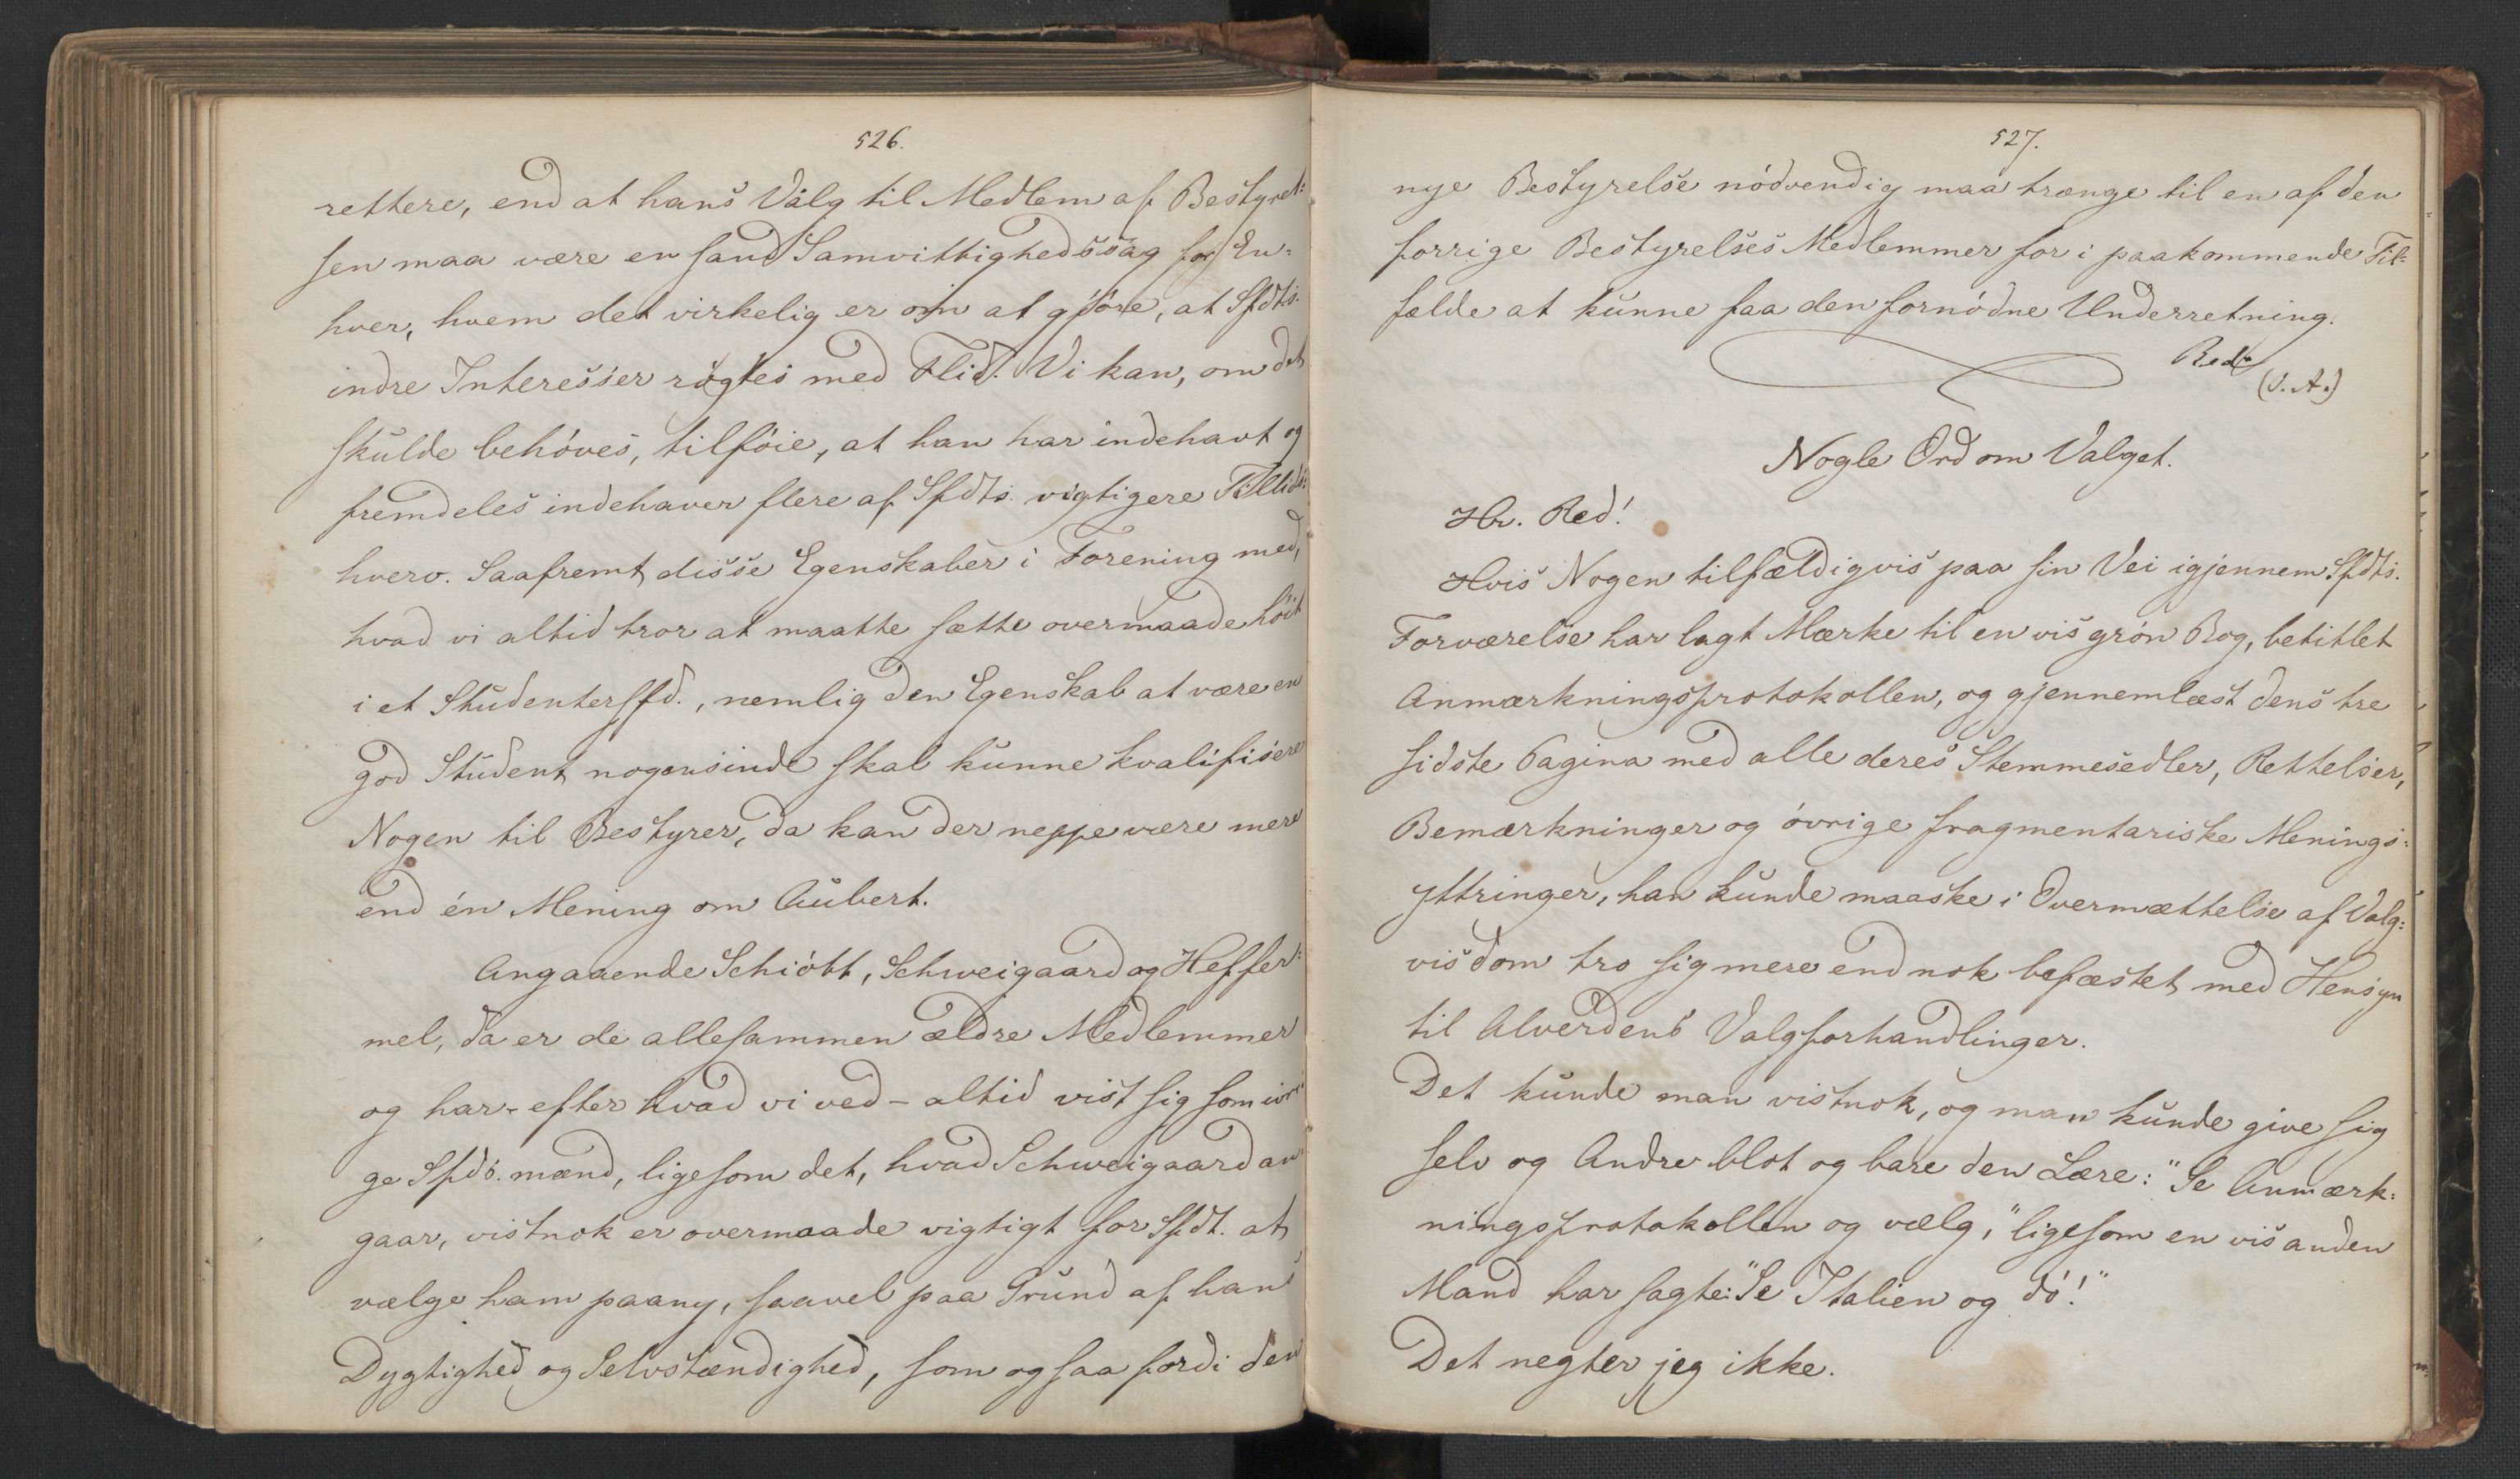 526.
rettere, end at hans Valg til Medlem af Bestyrel:
sen maa være en sand Samvittighedssag for En-
hver, hvem det virkelig er om at gjöre, at Sfdts.
indre Interesser rögtes med Flid. Vi kan, om det
skulde behöves, tilföie, at han har indehavt og
fremdeles indehaver flere af Sfdts. vigtigere Tillids:
hverv. Saafremt disse Egenskaber i Forening med,
hvad vi altid tror at maatte sætte overmaade höit
i et Studentersfd., nemlig den Egenskab at være en
god Student nogensinde skal kunne kvalifisere
Nogen til Bestyrer, da kan der neppe være mere
end én Mening om Aubert.
Angaaende Schiött, Schweigaard og Heffer:
mel, da er de allesammen ældre Medlemmer
og har - efter hvad vi ved - altid vist sig som ivri
ge Sfds. mænd, ligesom det, hvad Schweigaard an
gaar, vistnok er overmaade vigtigt for Sfdt. at
vælge ham paany, saavel paa Grund af hans
Dygtighed og Selvstændighed, som ogsaa fordi den
527.
nye Bestyrelse nödvendig maa trænge til en af den
forrige Bestyrelses Medlemmer for i paakommende Til-
fælde at kunne faa den fornödne Underretning.
Red.
(V. A.)
Nogle Ord om Valget.
Hr. Red!
Hvis Nogen tilfældigvis paa sin Vei igjennem Sfdts.
Forværelse har lagt Mærke til en vis grön Bog, betitlet
Anmærkningsprotokollen, og gjennemlæst dens tre
sidste Pagina med alle deres Stemmesedler, Rettelser,
Bemærkninger og övrige fragmentariske Menings:
yttringer, han kunde maaske i Overmættelse af Valg:
visdom tro sig mere end nok befæstet med Hensyn
til Alverdens Valgforhandlinger.
Det kunde man vistnok, og man kunde give sig
selv og Andre blot og bare den Lære: "Se Anmærk:
ningsprotokollen og vælg," ligesom en vis anden
Mand har sagt: "Se Italien og dö!"
Det negter jeg ikke.